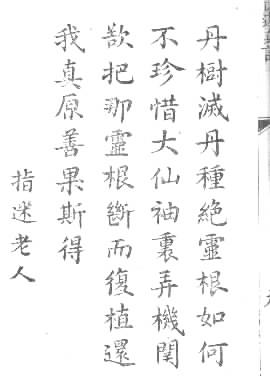 丹樹滅丹種絕靈根如何
不珍惜大仙袖裏弄機関
歎把那靈根斷而復植還
我真原善果斯得
指迷老人